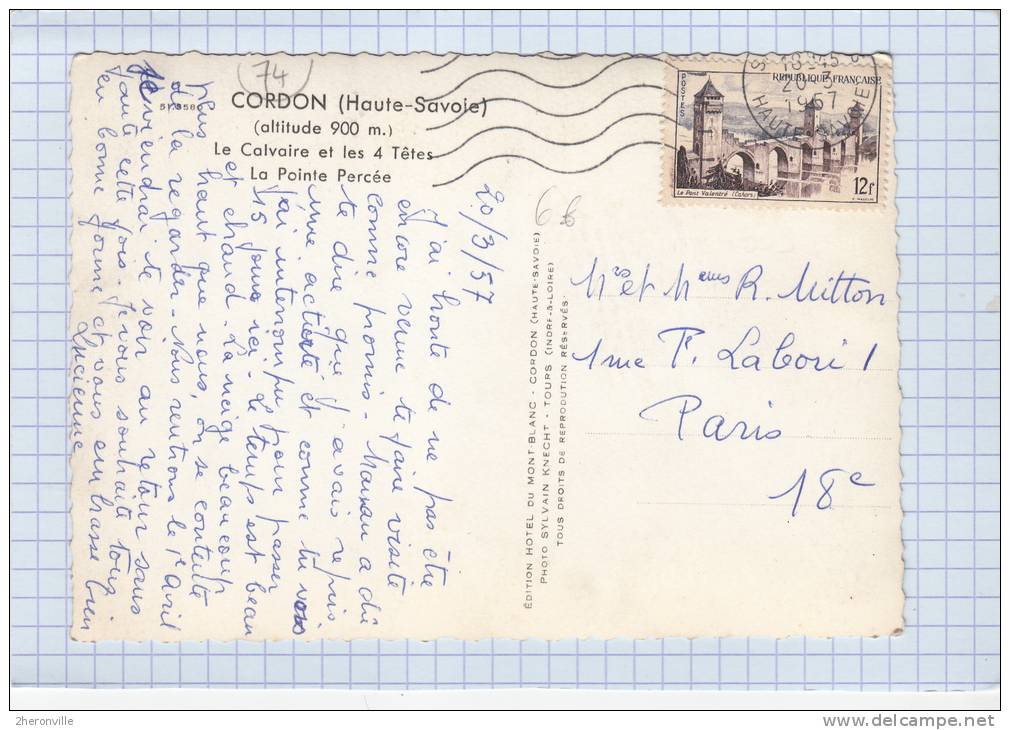 (74)
51 3586
CORDON (Haute-Savoie)
(altitude 900 m.)
Le Calvaire et les 4 Têtes
La Pointe Percée
REPUBLIQUE FRANÇAISE
POSTES
Le Pont Valentré (Cahors)
12f
20 - 3
1957
HAUTE SAVOIE
20/3/57
J'ai honte de ne pas être
encore venue te faire visite
comme promis - Maman a dû
te dire que j'avais repris
mon activité et comme tu vois
j'ai interrompu pour passer
15 jours ici. Le temps est beau
et chaud. La neige beaucoup
plus haut que nous, on se contente
de la regarder. Nous rentrons le 1er avril
Je viendrai te voir au retour sans
faute cette fois. Je vous souhaite tous
en bonne forme et vous embrasse bien
Lucienne
ÉDITION HOTEL DU MONT-BLANC - CORDON (HAUTE-SAVOIE)
PHOTO SYLVAIN KNECHT - TOURS (INDRE-&-LOIRE)
TOUS DROITS DE REPRODUCTION RÉSERVÉS.
Mrs et Mmes R. Mitton
1 rue F. Labori 1
Paris
18e
2heronville
www.delcampe.net